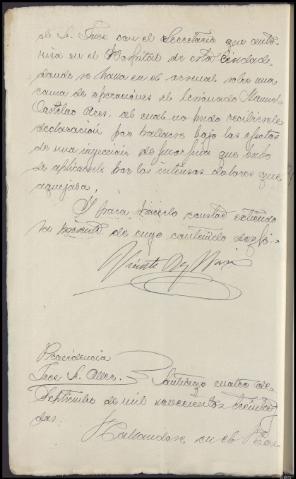 el Sr. Juez con el Secretario que auto-
riza en el Hospital de esta Ciudad
donde se halla en el actual sobre una
cama de operaciones el lesionado Manuel
Castelao Rey, al cual no pudo recibírsele
declaración por hallarse bajo los efectos
de una inyección de morfina que hubo
de aplicársele por los intensos dolores que
aquejaba.
Y para hacerlo constar extiendo
la presente de cuyo contenido doy fé.
Vicente Rey
Providencia
Juez Sr. Santiago cuatro de
Septiembre de mil novecientos treinta
dos:
Hallandose en el